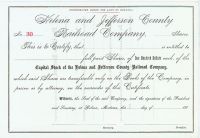 Helena and Jefferson County
No. 30 Railroad Company. Shares
This is to Certify, that is entitled to
full paid Shares, of One Hundred Dollars each, of the
Capital Stock of the Helena and Jefferson County Railroad Company,
which said Shares are transferable only on the Books of the Company, in
person or by attorney, on the surrender of this Certificate.
Witness, the Seal of the said Company, and the signatures of the President
and Secretary, at Helena, Montana, this day of 18